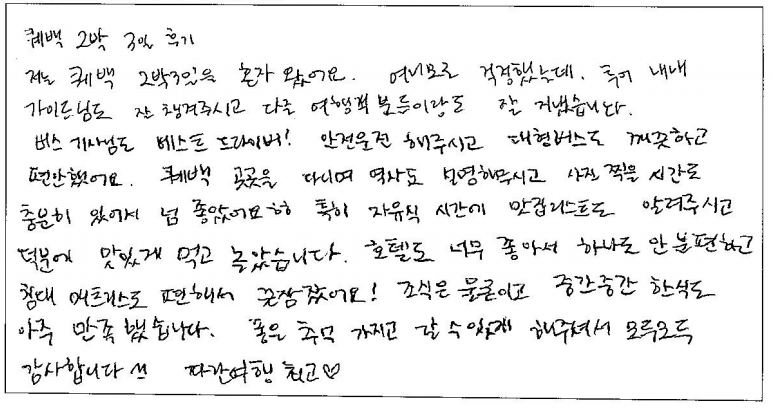 퀘백 2박 3일 후기
저는 퀘백 2박3일을 혼자 왔어요. 여러모로 걱정했는데, 투어 내내
가이드님도 잘 챙겨주시고 다른 여행객 분들이랑도 잘 지냈습니다.
버스 기사님도 베스트 드라이버! 안전운전 해주시고 대형버스도 깨끗하고
편안했어요. 퀘백 곳곳을 다니며 역사도 설명해주시고 사진 찍을 시간도
충분히 있어서 넘 좋았어요ㅎㅎ 특히 자유식 시간에 맛집리스트도 알려주시고
덕분에 맛있게 먹고 놀았습니다. 호텔도 너무 좋아서 하나도 안 불편하고
침대 매트리스도 편해서 꿀잠잤어요! 조식은 물론이고 중간중간 한식도
아주 만족했습니다. 좋은 추억 가지고 갈 수 있게 해주셔서 모두모두
감사합니다 ^^ 파란여행 최고♡